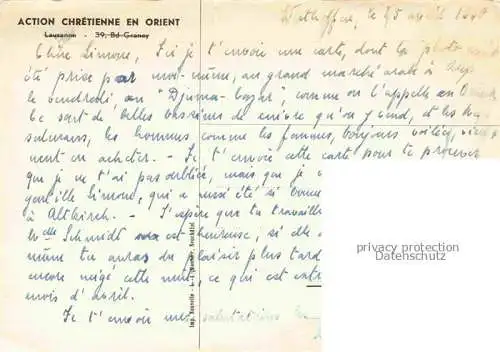 ACTION CHRÉTIENNE EN ORIENT
Lausanne - 39, Bd Grancy
le 25 avril
Chère Simone, Ici je t'envoie une carte, dont la photo
été prise par moi-même, au grand marché arabe à
le vendredi, au "Djuma-bazar", comme on l'appelle en
de sort de belles bassines de cuivre qu'on y vend, et les
musulmans, les hommes comme les femmes, toujours voilées,
nent en acheter. - Je t'envoie cette carte pour te prouver
que je ne t'ai pas oubliée, mais que je
gentille Simone, qui a aussi été si bonne
à Altkirch. - J'espère que tu travailles
Schmidt est heureuse, si elle
même tu auras du plaisir plus tard
encore neigé cette nuit, ce qui est
mois d'avril.
Je t'envoie mes salutations
privacy protection
Datenschutz